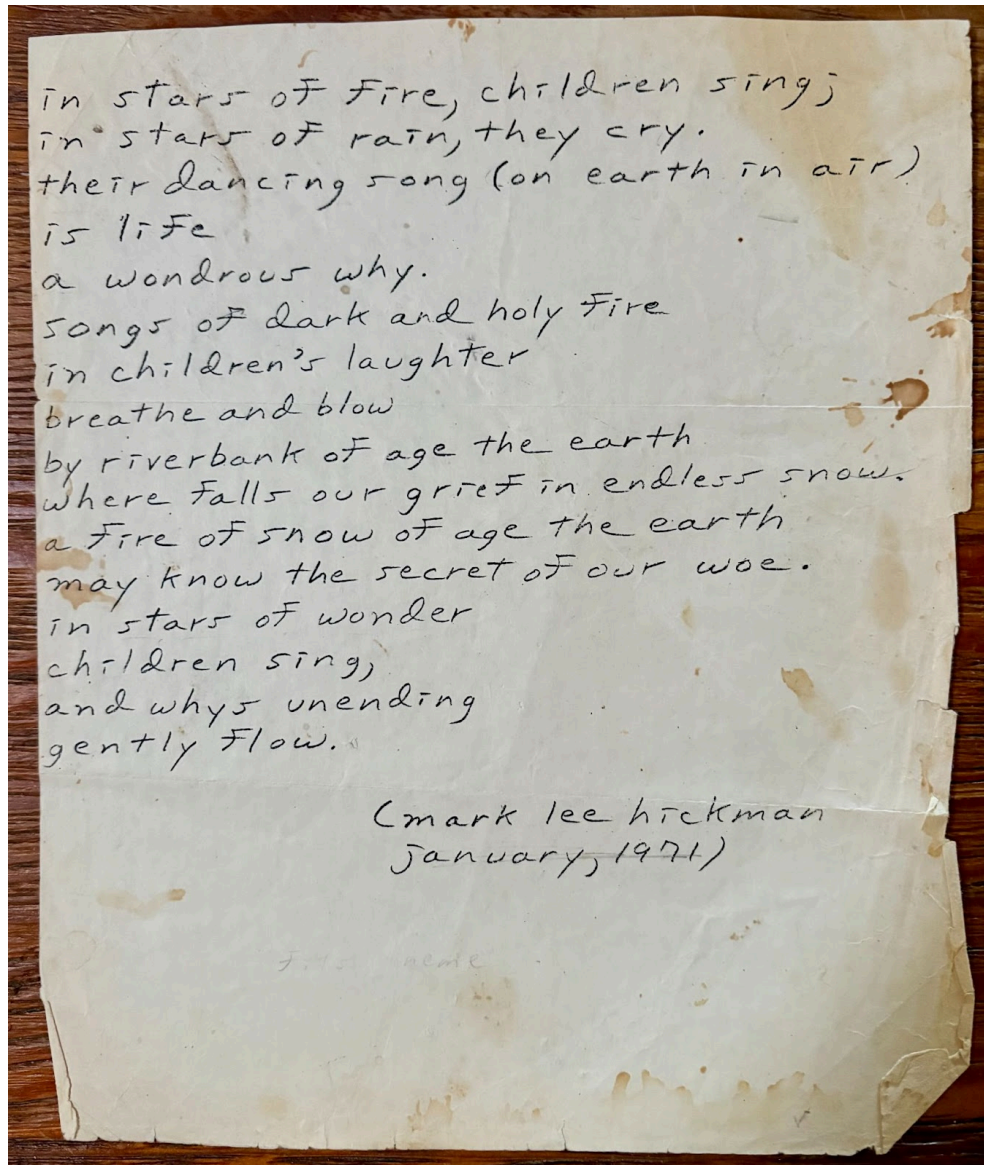 in stars of fire, children sing;
in stars of rain, they cry.
their dancing song (on earth in air)
is life
a wondrous why.
songs of dark and holy fire
in children's laughter
breathe and blow
by riverbank of age the earth
where falls our grief in endless snow.
a fire of snow of age the earth
may know the secret of our woe.
in stars of wonder
children sing,
and whys unending
gently flow.
(mark lee hickman
january, 1971)